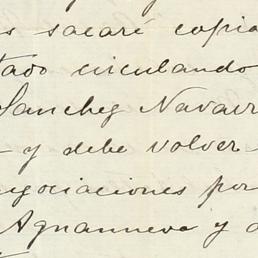 s sacaré copia
tado circulando
Sanchez Navarr
- y debe volver
egociaciones por
Aguanueva y d